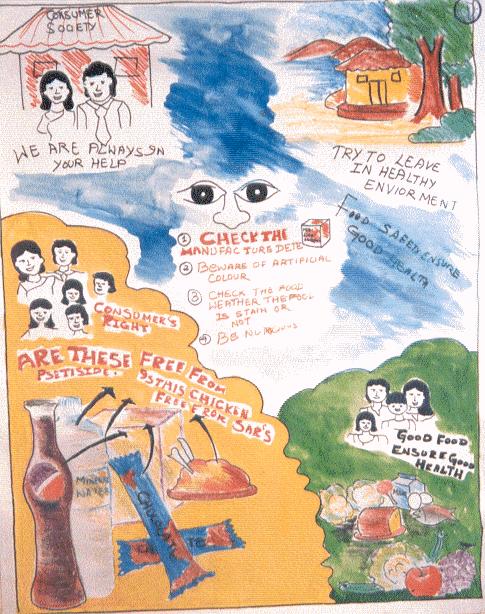 CONSUMER
SOCIETY
WE ARE ALWAYS IN
YOUR HELP
TRY TO LEAVE
IN HEALTHY
ENVIORMENT
FOOD SAFED ENSURE
GOOD HEALTH
① CHECK THE
MANUFACTURE DETE
② BEWARE OF ARTIFICIAL
COLOUR
③ CHECK THE FOOD
WEATHER THE FOOD
IS STAIN OR
NOT
④ BE
CONSUMER'S
RIGHT
ARE THESE FREE FROM
PSETISIDE.
IS THIS CHICKEN
FREE FROM SAR'S
MINERAL
WATER
CHOCOLATE
GOOD FOOD
ENSURE GOOD
HEALTH